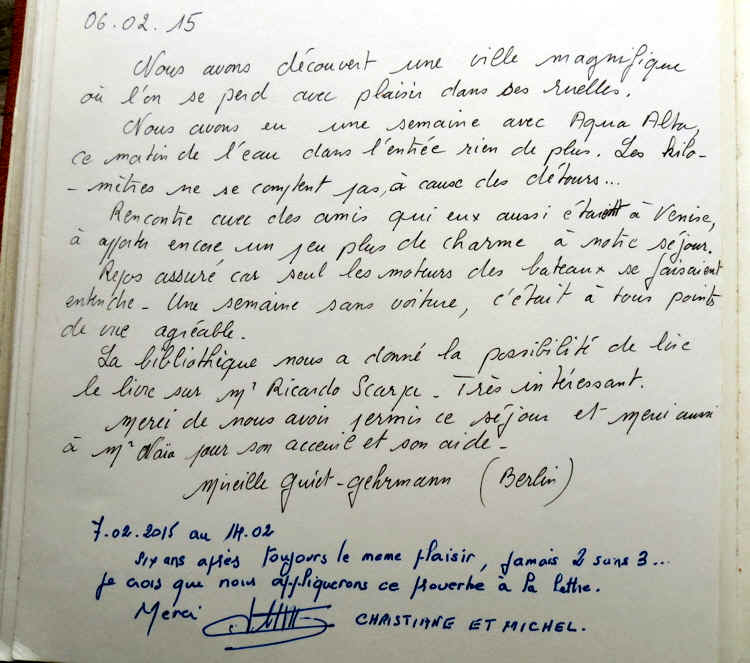 06.02.15
Nous avons découvert une ville magnifique
où l'on se perd avec plaisir dans ses ruelles.
Nous avons eu une semaine avec Aqua Alta,
ce matin de l'eau dans l'entrée rien de plus. Les kilo-
-mètres ne se comptent pas, à cause des détours...
Rencontre avec des amis qui eux aussi étaient à Venise,
à apporter encore un peu plus de charme à notre séjour.
Repos assuré car seul les moteurs des bateaux se faisaient
entendre - Une semaine sans voiture, c'était à tous points
de vue agréable.
La bibliothèque nous a donné la possibilité de lire
le livre sur Mr Ricardo Scarpa - Très intéressant.
Merci de nous avoir permis ce séjour et merci aussi
à Mr Naïa pour son acceuil et son aide -
Mireille Guiet-Gehrmann (Berlin)
7.02.2015 au 14.02
Six ans après toujours le meme plaisir, jamais 2 sans 3...
je crois que nous appliquerons ce proverbe à la lettre.
Merci CHRISTIANE ET MICHEL.